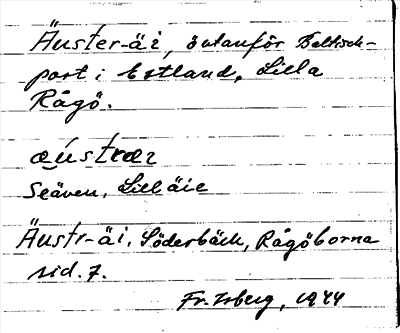 Äuster-äi, öutanför Baltisch-
port i Estland, Lilla
Rågö.
æústrær
Seäven, Lilläie
Äustr-äi, Söderbäck, Rågöborna
sid. 7.
Fr. Isberg, 1944